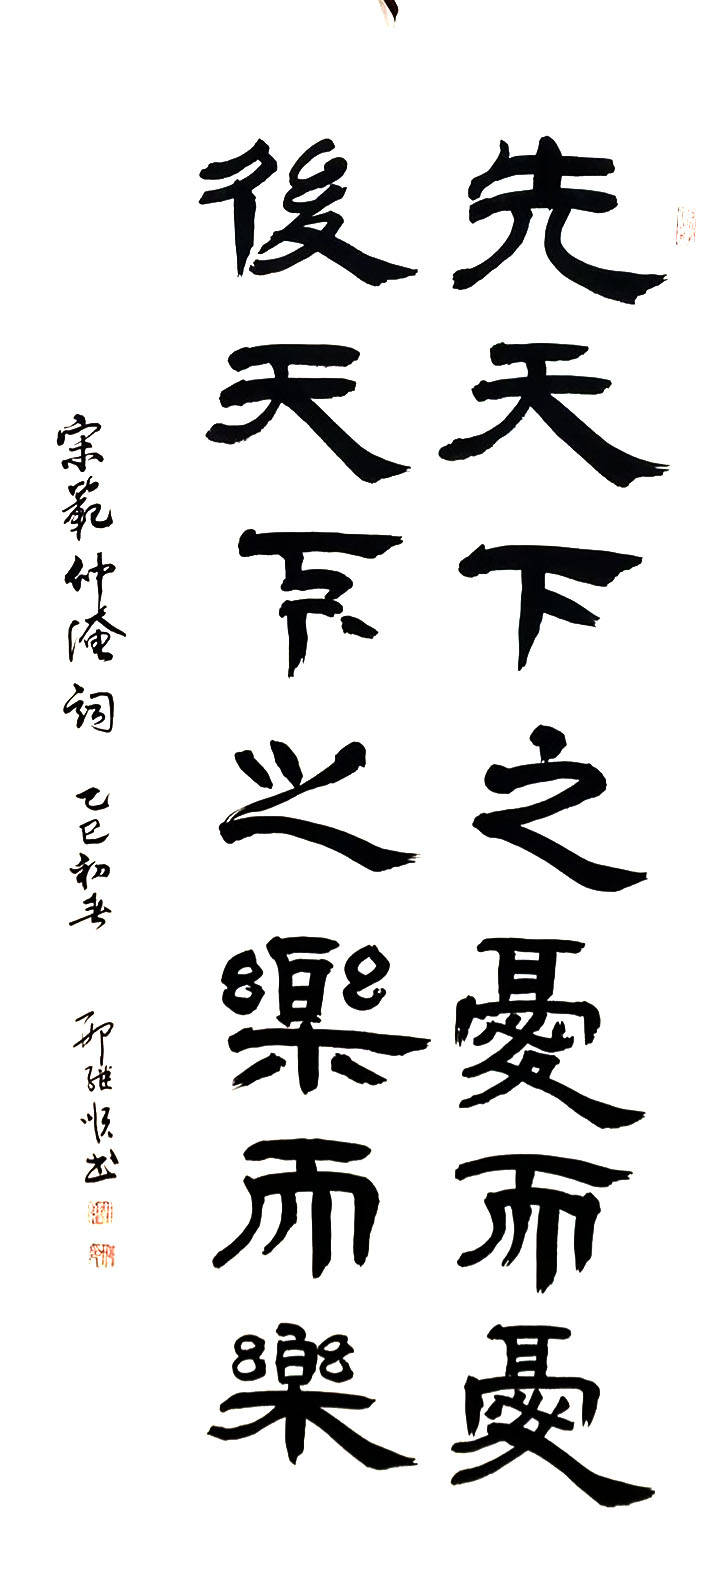 先天下之憂而憂
後天下之樂而樂
宋範仲淹詞 乙巳初春 邢維順书